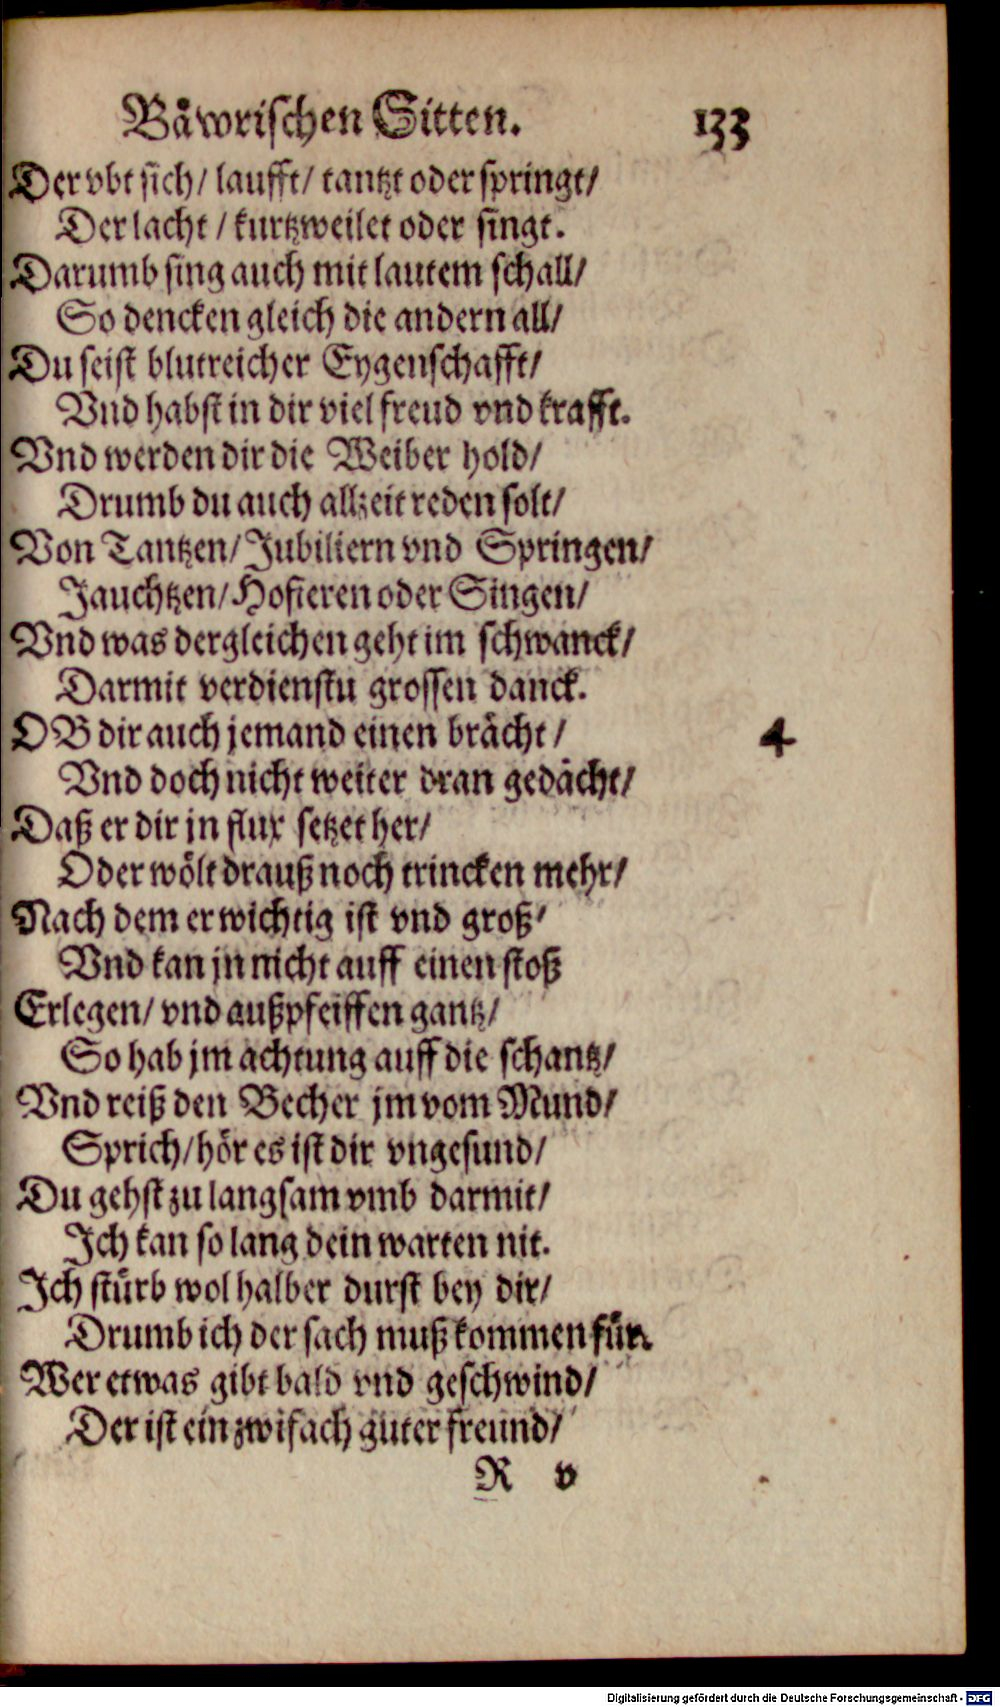 Bäwrischen Sitten. 133
Der vbt sich/ laufft/ tantzt oder springt/
Der lacht / kurtzweilet oder singt.
Darumb sing auch mit lautem schall/
So dencken gleich die andern all/
Du seist blutreicher Eygenschafft/
Vnd habst in dir viel freud vnd krafft.
Vnd werden dir die Weiber hold/
Drumb du auch allzeit reden solt/
Von Tantzen/ Jubiliern vnd Springen/
Jauchtzen/ Hofieren oder Singen/
Vnd was dergleichen geht im schwanck/
Darmit verdienstu grossen danck.
OB dir auch jemand einen brächt / 4
Vnd doch nicht weiter dran gedächt/
Daß er dir jn flux setzet her/
Oder wölt drauß noch trincken mehr/
Nach dem er wichtig ist vnd groß/
Vnd kan jn nicht auff einen stoß
Erlegen/ vnd außpfeiffen gantz/
So hab jm achtung auff die schantz/
Vnd reiß den Becher jm vom Mund/
Sprich/ hör es ist dir vngesund/
Du gehst zu langsam vmb darmit/
Ich kan so lang dein warten nit.
Ich stürb wol halber durst bey dir/
Drumb ich der sach muß kommen für.
Wer etwas gibt bald vnd geschwind/
Der ist ein zwifach guter freund/
R v
Digitalisierung gefördert durch die Deutsche Forschungsgemeinschaft - DFG